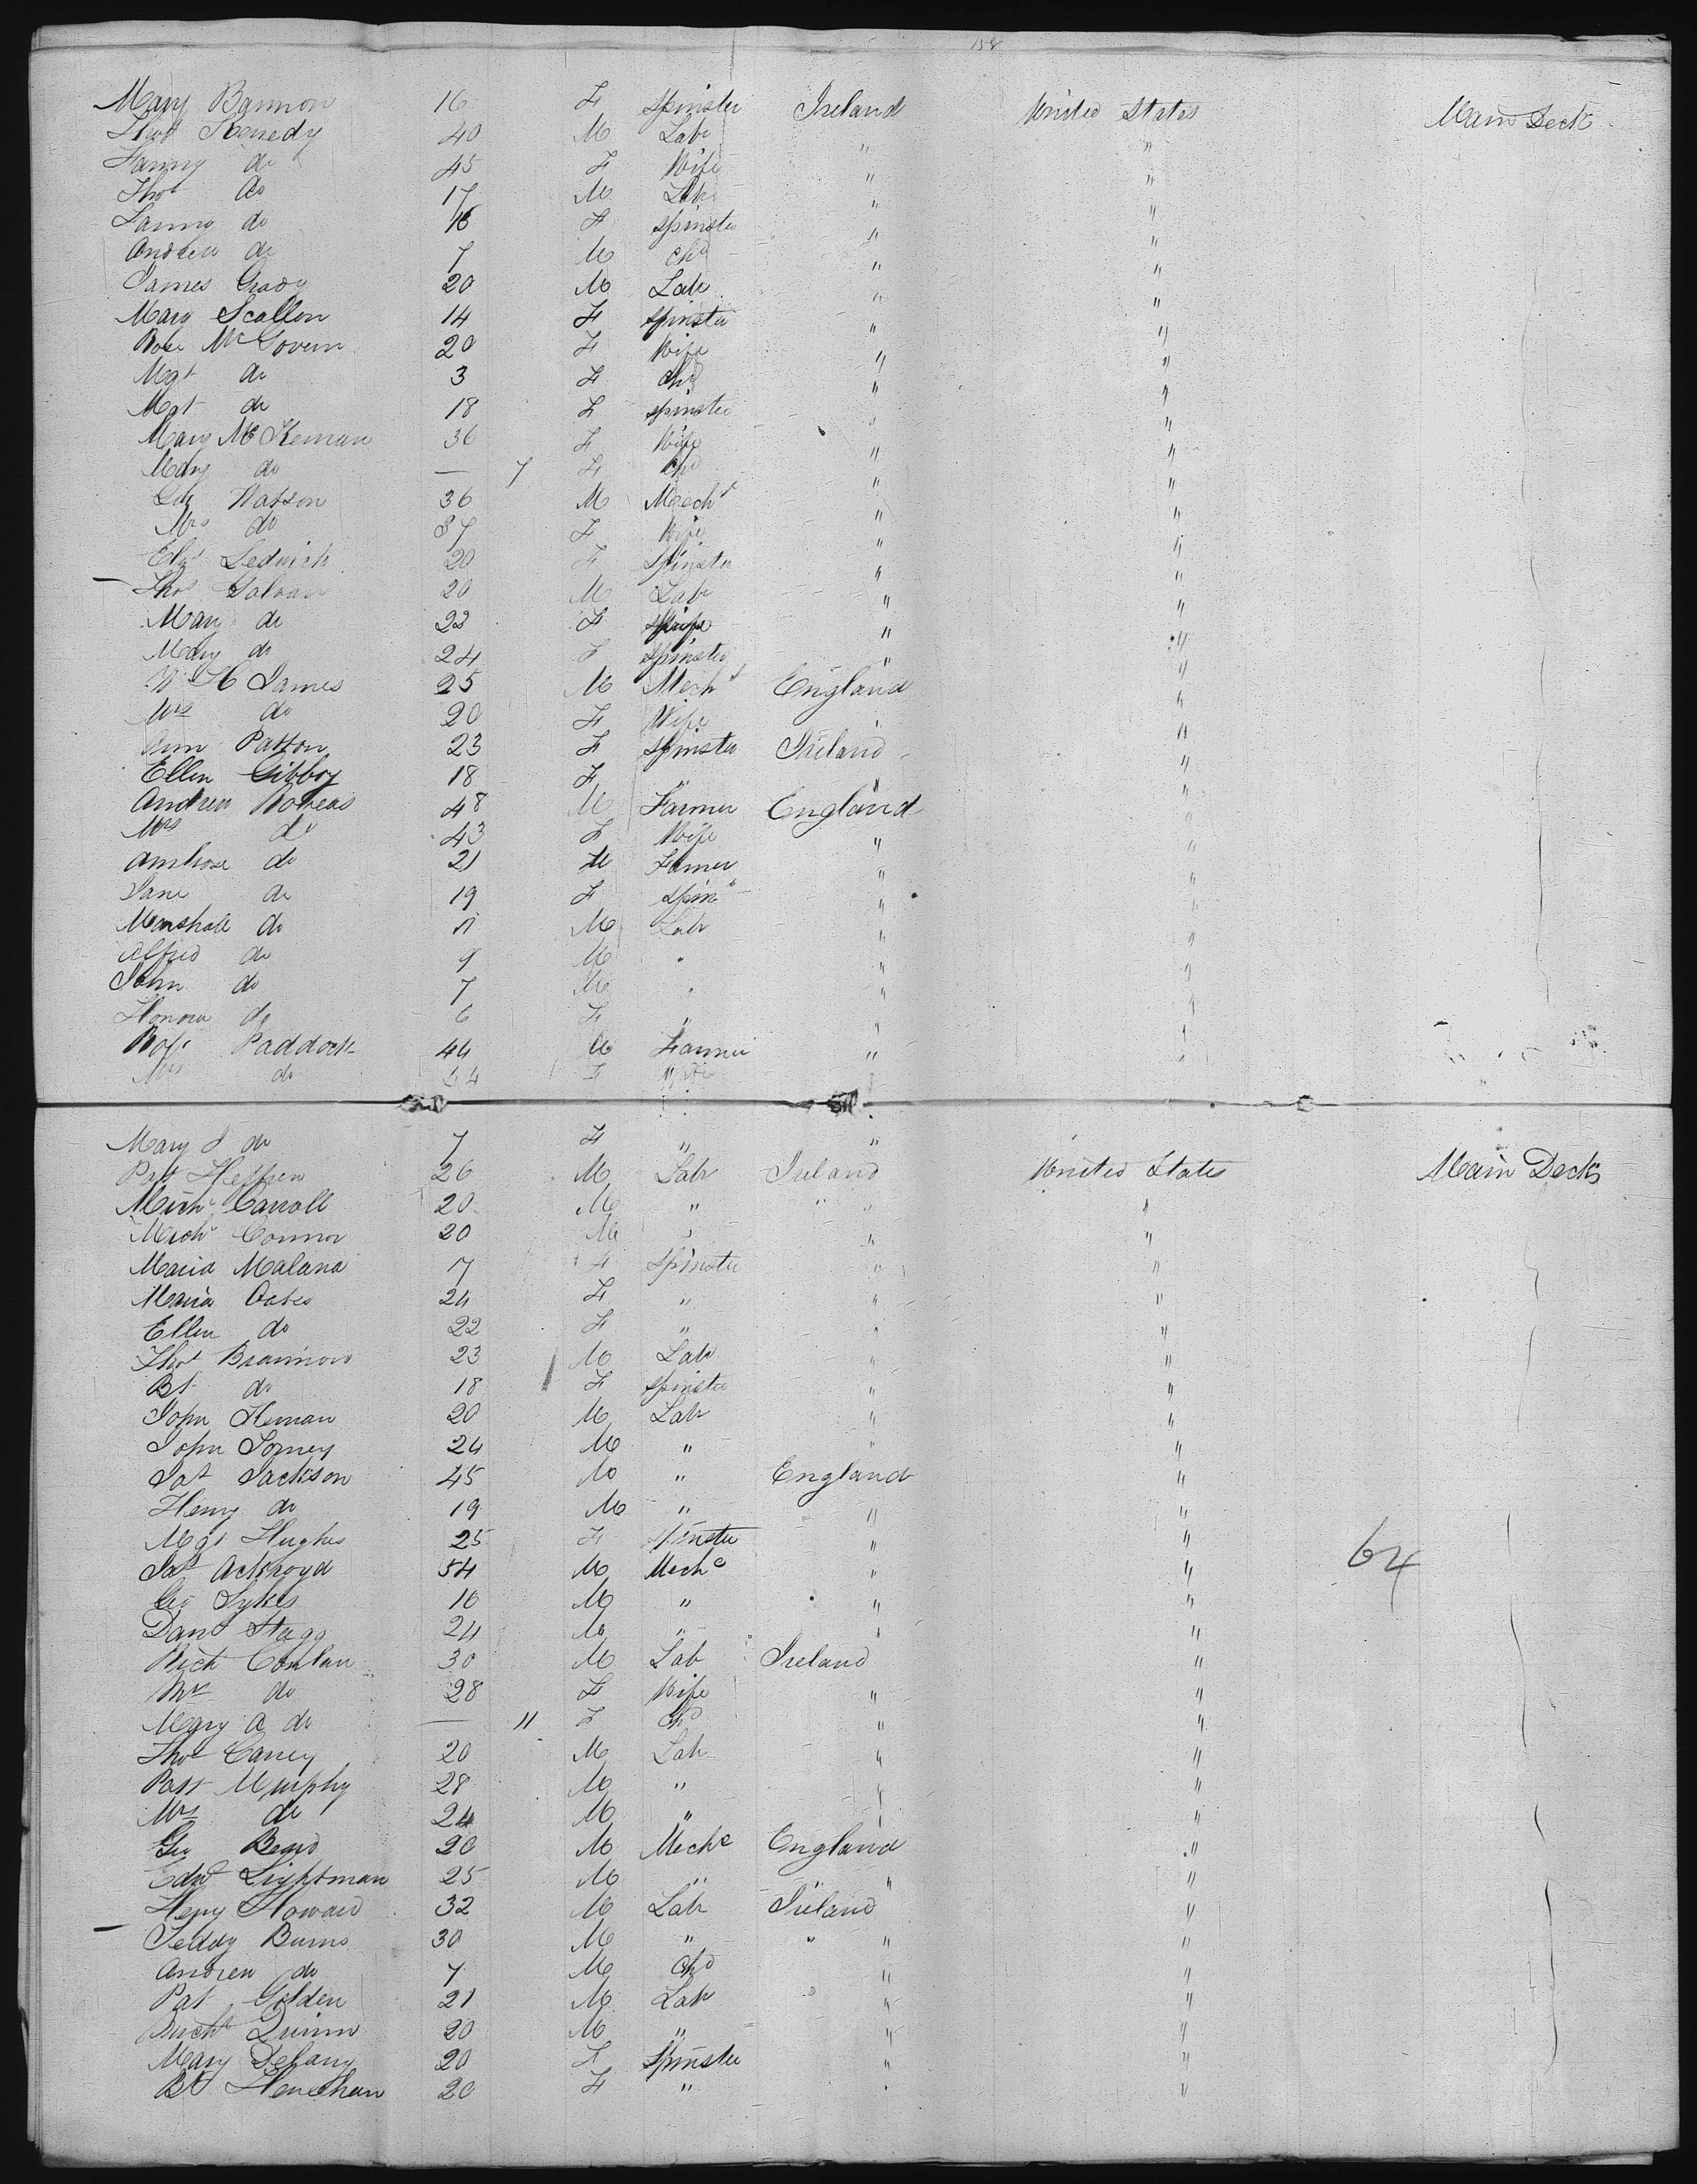 158
Mary Bannon 16 F Spinster Ireland United States Main Deck
Thos Kenedy 40 M Labr " "
Fanny do 45 F Wife " "
Thos do 17 M Labr " "
Fanny do 16 F Spinster " "
Andrew do 7 M Chd " "
James Grady 20 M Labr " "
Mary Scallon 14 F Spinster " "
Rose McGovern 20 F Wife " "
Mgt do 3 F Chd " "
Mgt do 18 F Spinster " "
Mary McKernan 36 F Wife " "
Mary do — 7 F Chd " "
Watson 36 M Mechc " "
Mrs do 37 F Wife " "
Elz Ledwich 20 F Spinster " "
Thos Galvan 20 M Labr " "
Mary do 23 F " "
Mary do 24 F Spinster " "
W H James 25 M Mechc England "
Mrs do 20 F Wife " "
Ann Patton 23 F Spinster Ireland "
Ellen Gibboy 18 F " " "
Andrew 48 M Farmer England "
Mrs do 43 F Wife " "
Ambrose do 21 M Farmer " "
Jane do 19 F Spinr " "
Marshall do 11 M Labr " "
Alfred do 9 M " " "
John do 7 M " " "
Honora do 6 F " " "
Robt Paddock 44 M Farmer " "
Mrs do 44 F Wife
Mary J do 7 F " "
Pat Heffren 26 M Labr Ireland United States Main Deck
Michl Carroll 20 M " " "
Michl Connor 20 M " " "
Maria Malana 17 F Spinster " "
Maria Oates 24 F " " "
Ellen do 22 F " " "
Thos Brannon 23 M Labr " "
Bt do 18 F Spinster " "
John Kernan 20 M Labr " "
John Torney 24 M " " "
Jas Jackson 45 M " England "
Henry do 19 M " " "
Mgt Hughes 25 F Spinster " "
Jas Ackroyd 54 M Mechc " " 64
Geo Sykes 16 M " " "
Danl Stagg 24 M " " "
Rich Conlan 30 M Lab Ireland "
Mrs do 28 F Wife " "
Mary A do — 11 F Chd " "
Thos Carney 20 M Labr " "
Patt Murphy 28 M " " "
Mrs do 24 M " " "
Geo Beard 20 M Mechc England "
Edwd Lightman 25 M " " "
Heny Howard 32 M Labr Ireland "
Teddy Burns 30 M " " "
Andrew do 7 M Chd " "
Pat Golden 21 M Labr " "
Michl Quinn 20 M " " "
Mary Delany 20 F Spinster " "
Bt Henehan 20 F " " "